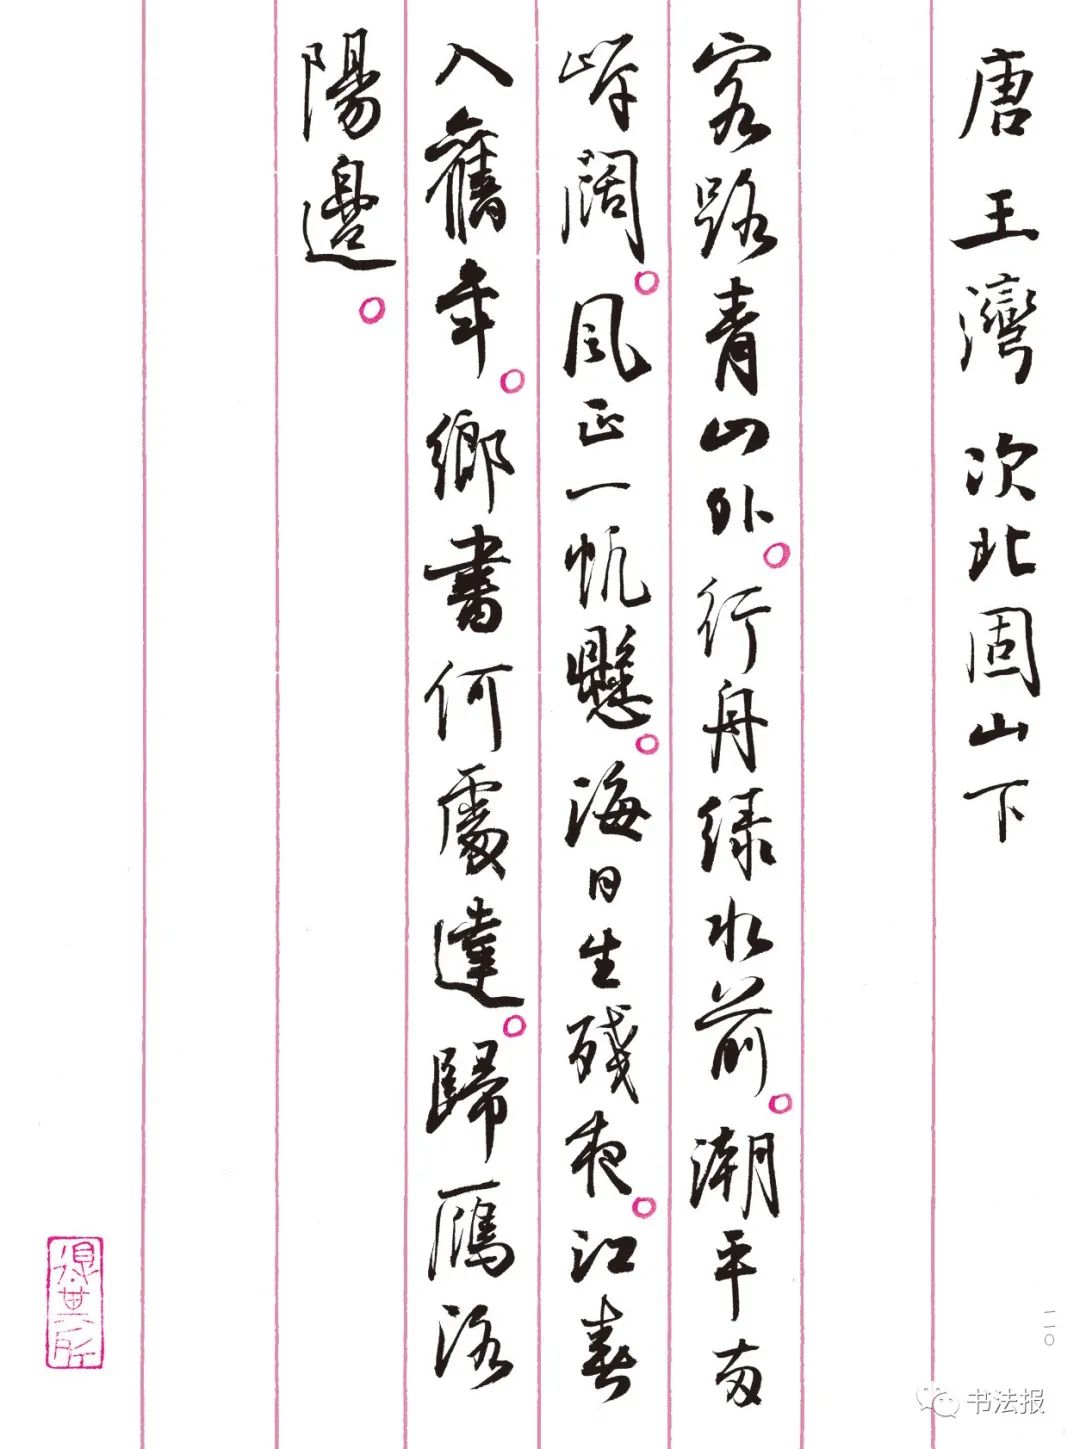 唐 王灣 次北固山下
客路青山外。行舟緑水前。潮平兩
岸闊。風正一帆懸。海日生殘夜。江春
入舊年。鄉書何處達。歸鴈洛
陽邊。
得其所
一一〇
书法报